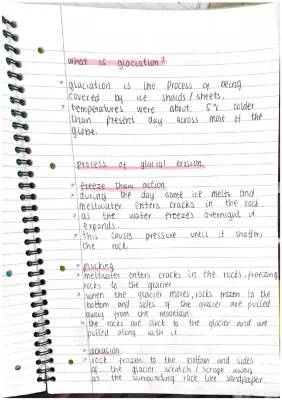 what is glaciation?
> glaciation is the process of being
covered by ice shields / sheets.
> temperatures were about 5°c colder
than present day across most of the
globe.
process of glacial erosion.
> freeze thaw action
> during the day some ice melts and
meltwater enters cracks in the rock.
> as the water freezes overnight it
expands.
> this causes pressure until it shatters
the rock
> plucking
> meltwater enters cracks in the rocks, freezing
rocks to the glacier
> when the glacier moves, rocks frozen to the
bottom and sides of the glacier are pulled
away from the mountain.
> the rocks are stuck to the glacier and are
pulled along with it.
> abrasion
> rock frozen to the bottom and sides
of the glacier scratch / scrape away
at the surrounding rock like sandpaper.